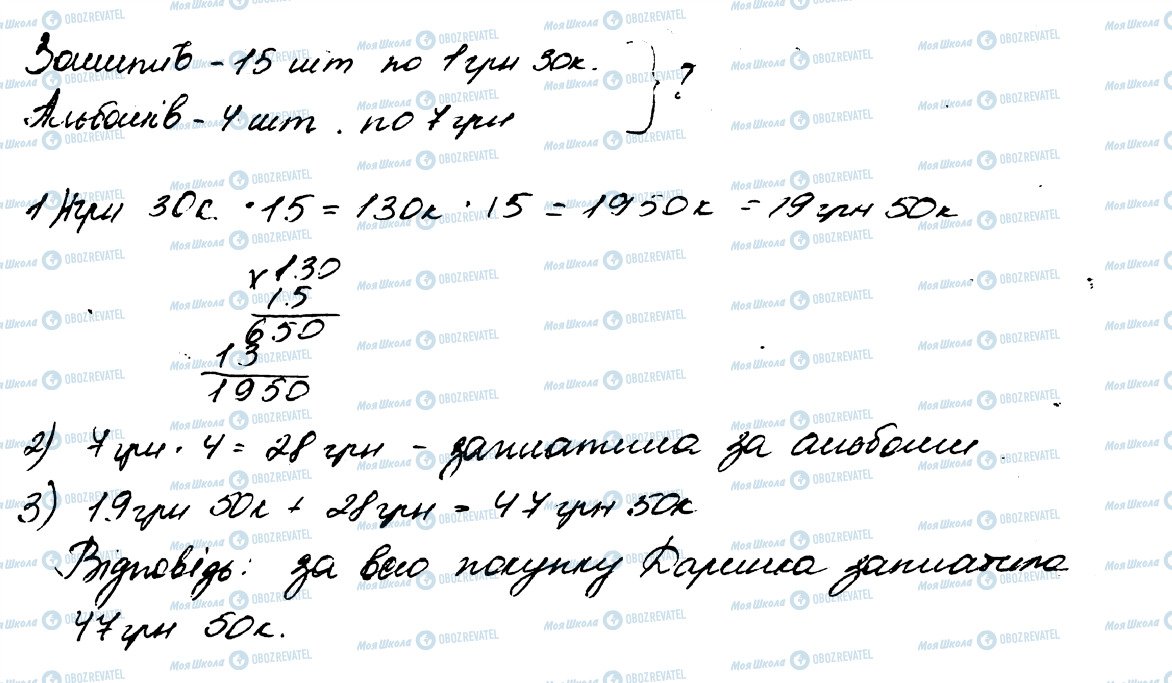 Зошитів - 15 шт по 1 грн 30к. } ?
Альбомів - 4 шт. по 7 грн
1) 1грн 30к. · 15 = 130к · 15 = 1950к = 19 грн 50к
x 130
15
650
13
1950
2) 7 грн · 4 = 28 грн - заплатила за альбоми
3) 19 грн 50к + 28 грн = 47 грн 50к
Відповідь: за всю покупку Даринка заплатила
47 грн 50к.